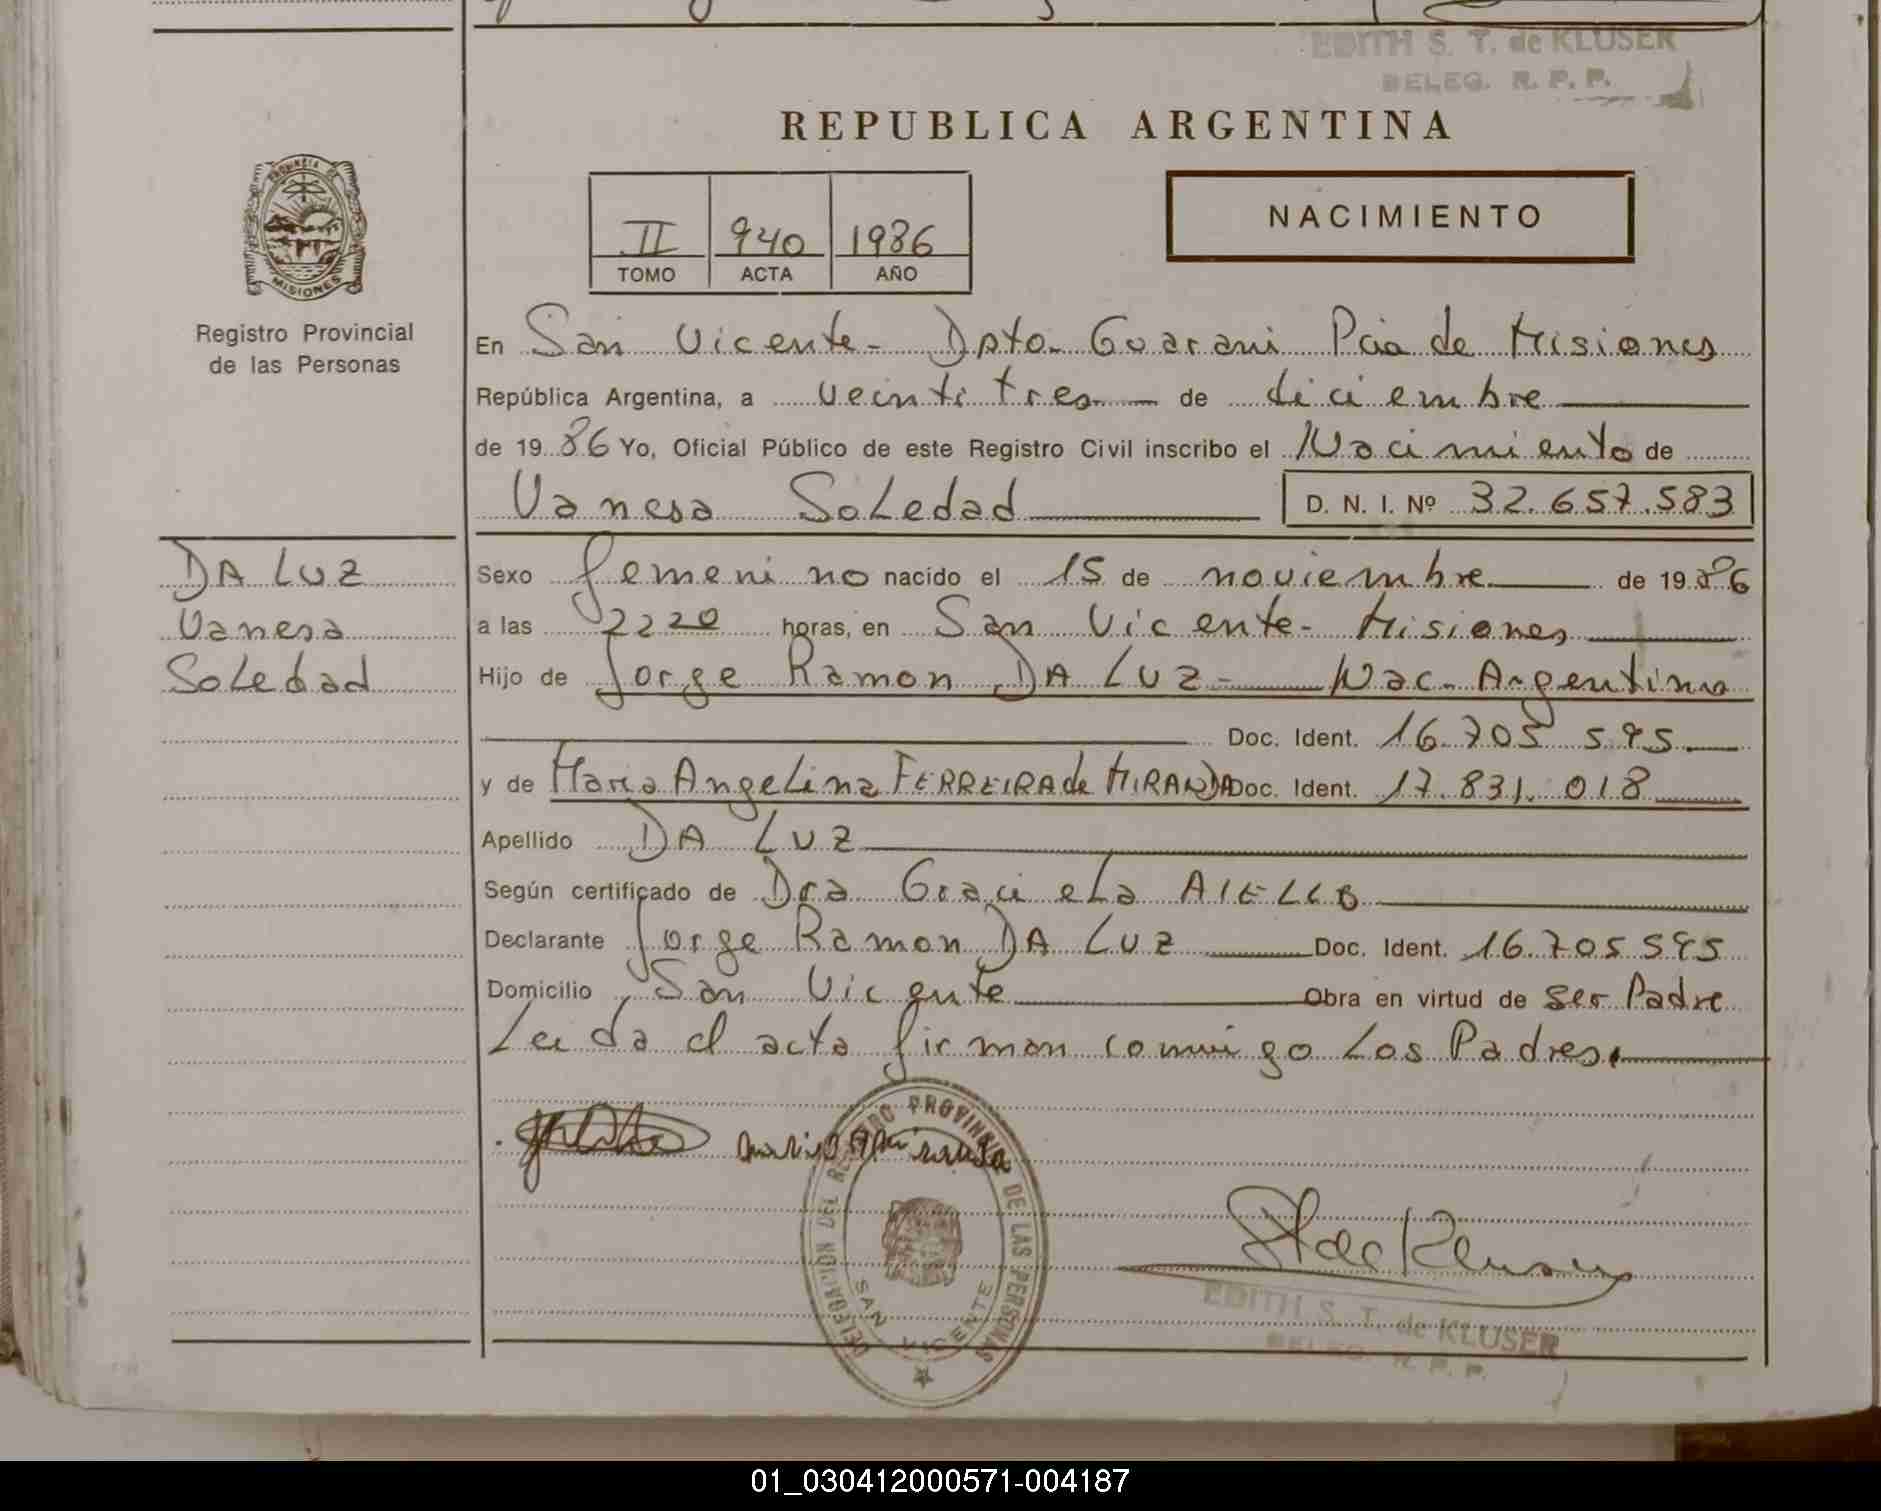 EDITH S. T. de KLUSER
DELEG. R. P. P.
REPUBLICA ARGENTINA
PROVINCIA DE
MISIONES
Registro Provincial
de las Personas
II 940 1986
TOMO ACTA AÑO
NACIMIENTO
En San Vicente - Dpto. Guarani Pcia de Misiones
República Argentina, a veintitres de diciembre
de 1986 Yo, Oficial Público de este Registro Civil inscribo el Nacimiento de
Vanesa Soledad D. N. I. Nº 32.657.583
DA LUZ
Vanesa
Soledad
Sexo femenino nacido el 15 de noviembre de 1986
a las 2220 horas, en San Vicente - Misiones
Hijo de Jorge Ramon DA LUZ - Nac. Argentina
Doc. Ident. 16.705 595
y de Maria Angelina FERREIRA de MIRANDA Doc. Ident. 17.831.018
Apellido DA LUZ
Según certificado de Dra Graciela AIELLO
Declarante Jorge Ramon DA LUZ Doc. Ident. 16.705595
Domicilio San Vicente Obra en virtud de ser Padre
Leida el acta firman conmigo los Padres.
DELEGACION DEL REGISTRO PROVINCIAL DE LAS PERSONAS
SAN VICENTE
de Kluser
EDITH S. T. de KLUSER
DELEG. R. P. P.
01_030412000571-004187